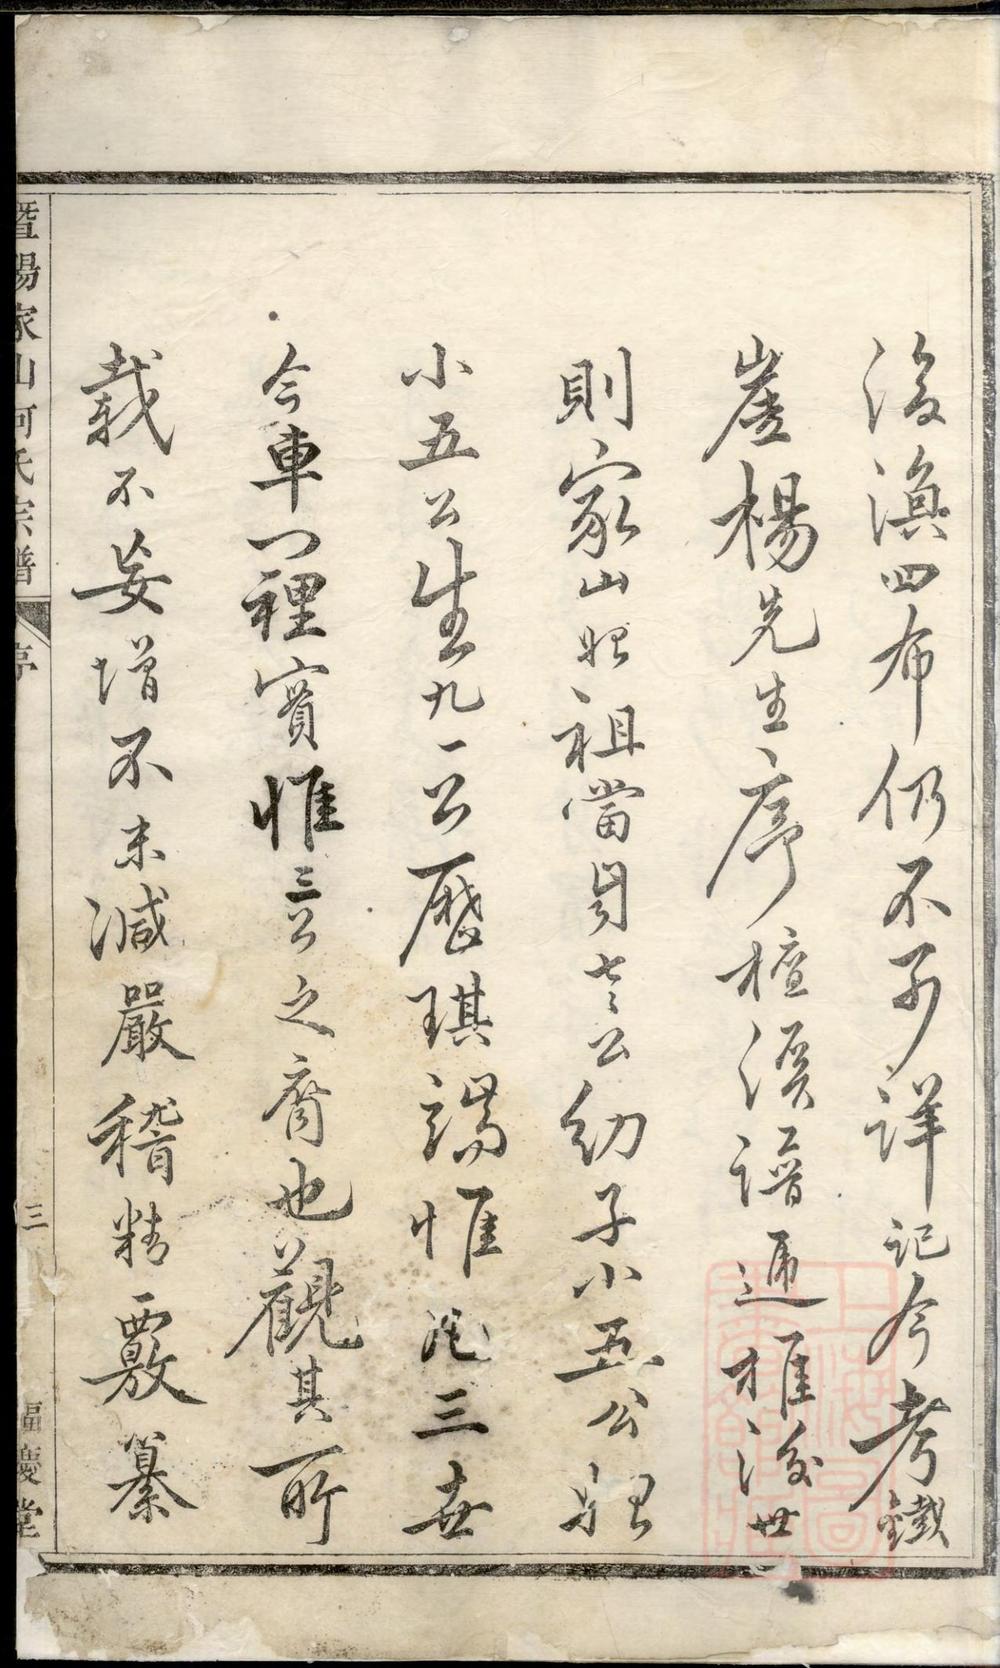 後漁四布仍不可詳記今考鐵
崖楊先生序檀溪譜遞推後世
則家山始祖當屬七公幼子小五公
小五公生九一公歷琪端惟 三世
今車門裡實惟三公之裔也觀其所
載不妄增不末減嚴稽精覈纂
暨陽家山何氏宗譜
序
三
福慶堂